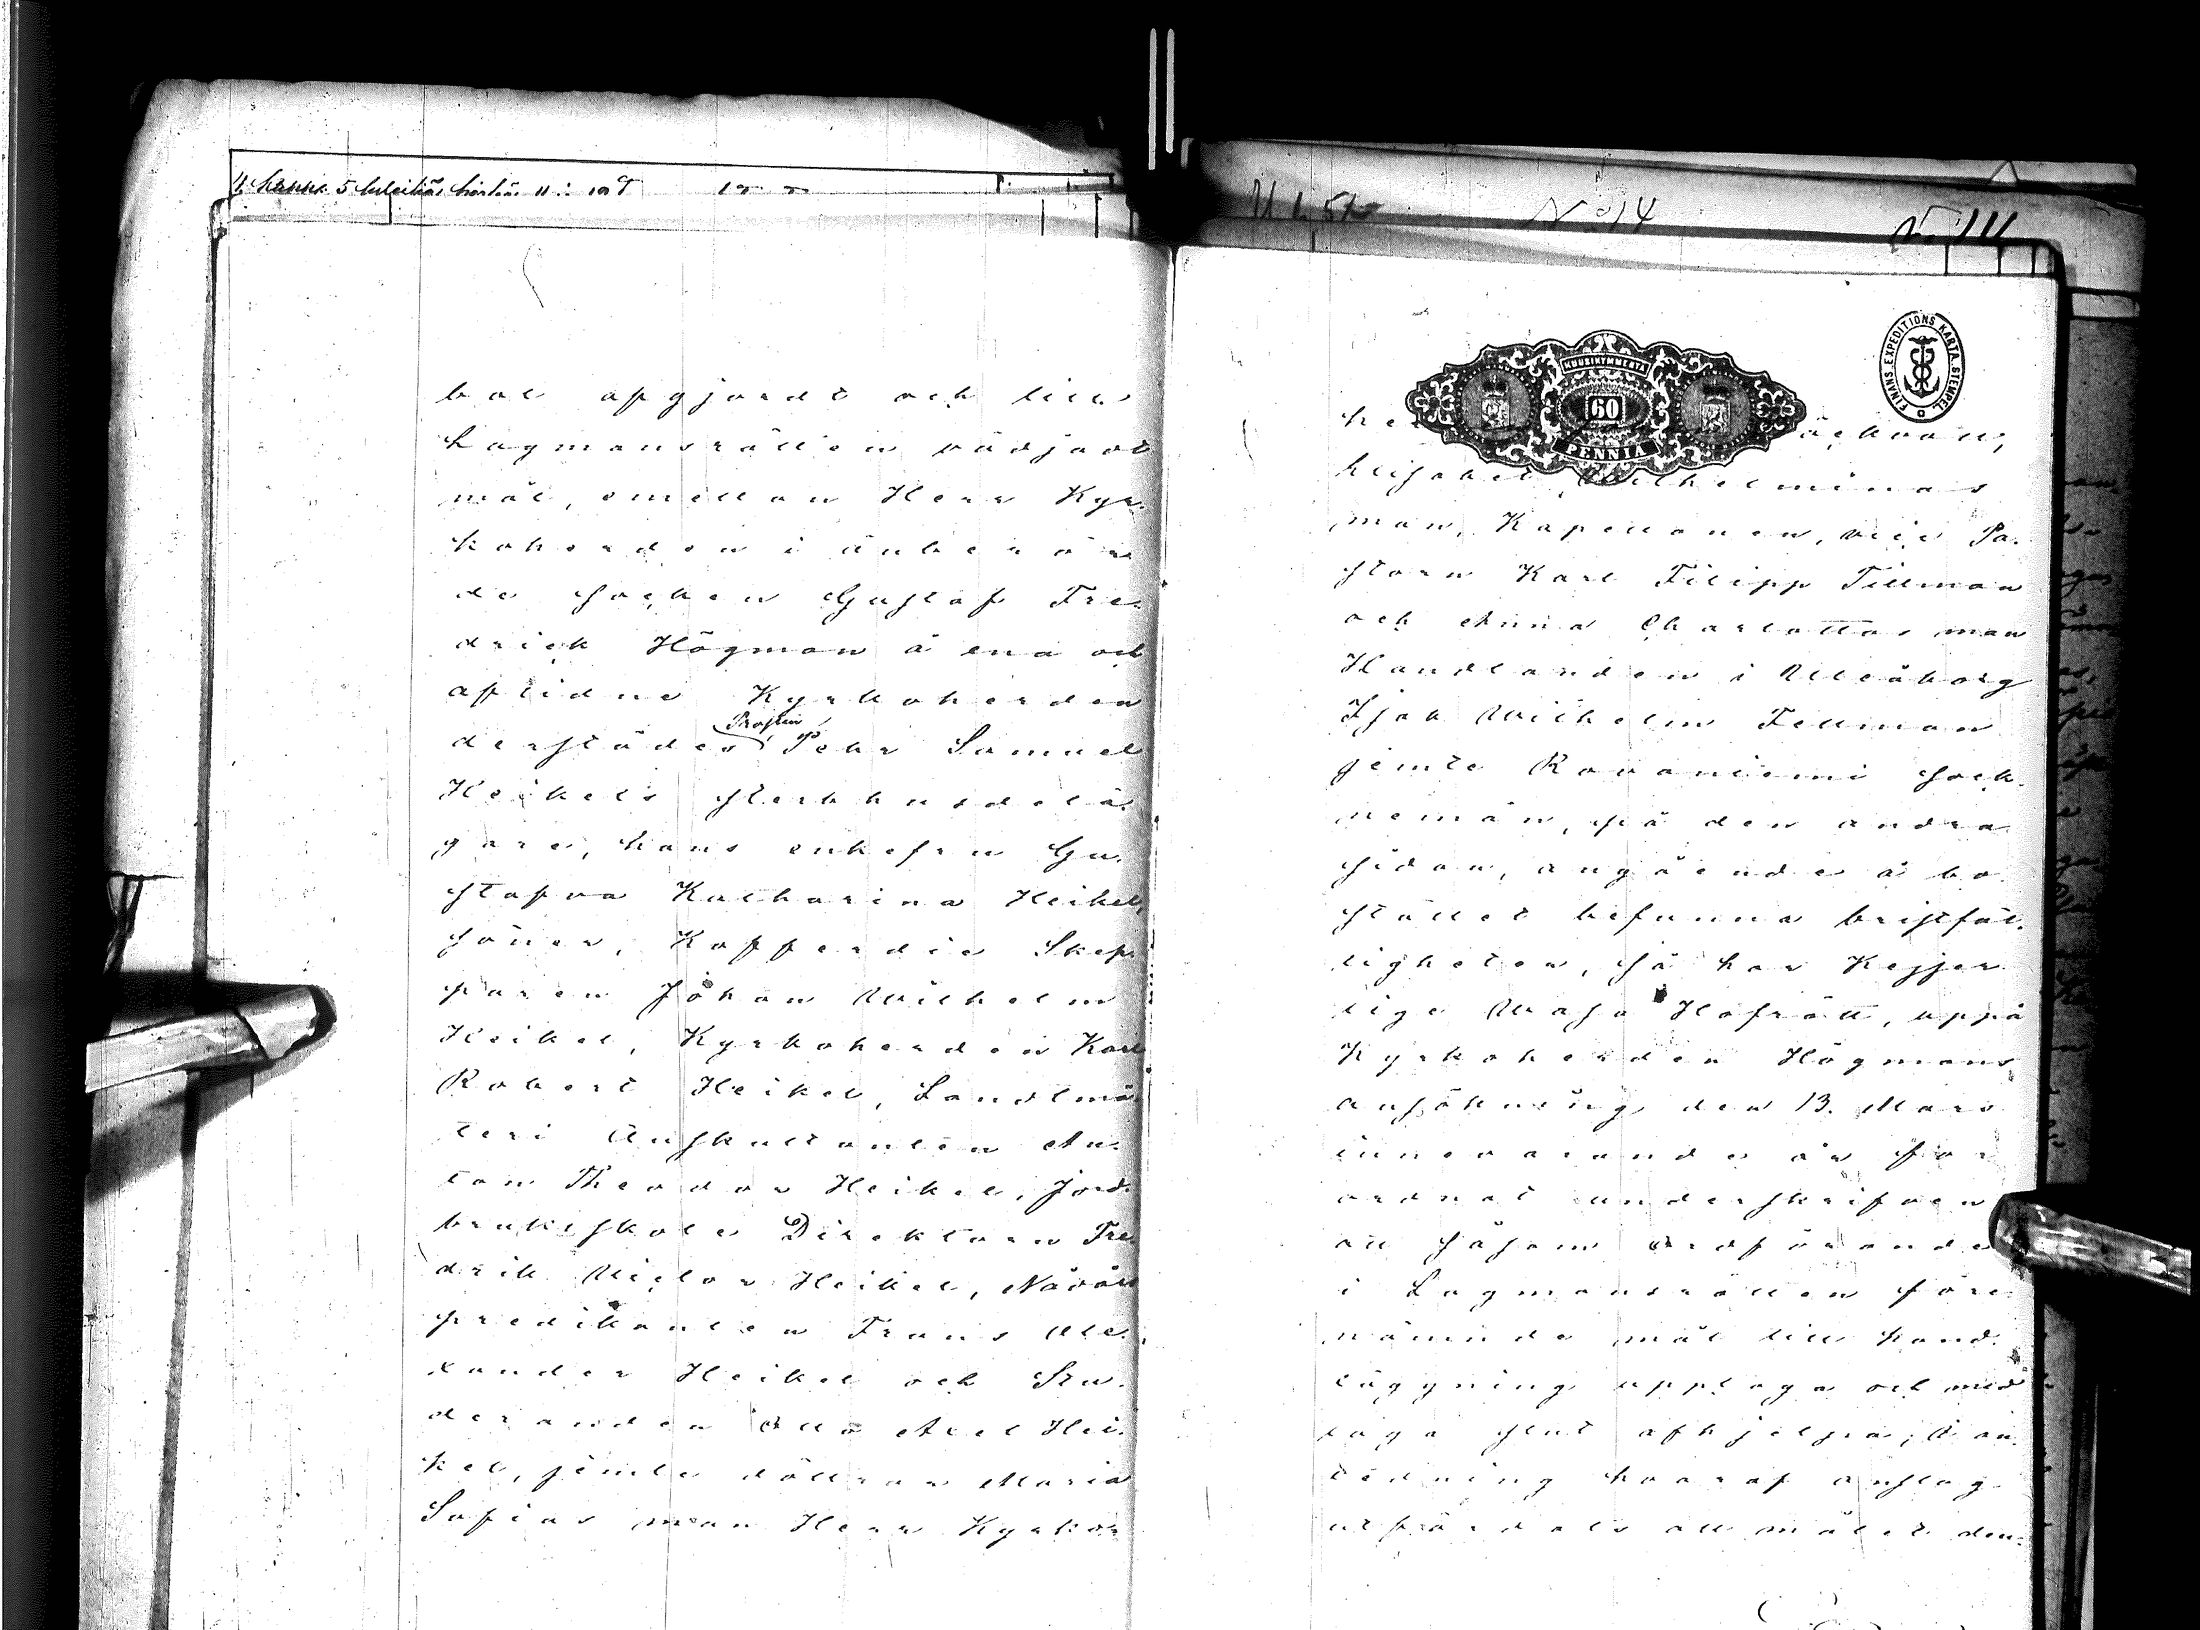 bol afgjordt och till
Lagmansrätten vädjadt
mål, emellan Herr Kyr-
koherden i änberör
de Socken Gustaf Fre-
drick Högman å ena och
aflidne Kyrkoherden
Prosten
derstädes Pehr Samuel
Heikels sterbhusdelä-
gare, hans enkefru Gu-
stafva Katharina Heikel,
söner, Kofferdie Skep-
paren Johan Wilhelm
Heikel, Kyrkoherden Karl
Robert Heikel, Landtmä-
teri Auskultanten An-
ton Theodor Heikel, Jord-
bruksskole Direktorn Fre
drik Victor Heikel, Nödår
predikanten Frans Ale-
xander Heikel och Stu-
deranden Otto Axel Hei-
kel, jemte döttrar Maria
Sofias man Herr Kyrko-
N:o 14
KUUSIKYMMENTÄ
60
PENNIÄ
FINANS EXPEDITIONS KARTA STEMPEL
he
Elisabet Wilhelminas
man, Kapellanen, vice Pa-
storn Karl Filipp Tillman
och Anna Charlottas man
Handlanden i Uleåborg
Isak Wilhelm Fellman
jemte Rovaniemi Sock-
nemän, på den andra
sidan, angående å bo-
stället befunna bristfäl-
ligheter, så har Kejser-
lige Wasa Hofrätt, uppå
Kyrkoherden Högmans
ansökning den 13. Mars
innevarande år för
ordnat underskrifven
att såsom Ordförande
i Lagmansrätten före-
nämnde mål till hand-
läggning upptaga och med
laga slut afhjelpa; i an-
ledning hvaraf anslag
utfärdats att målet den-